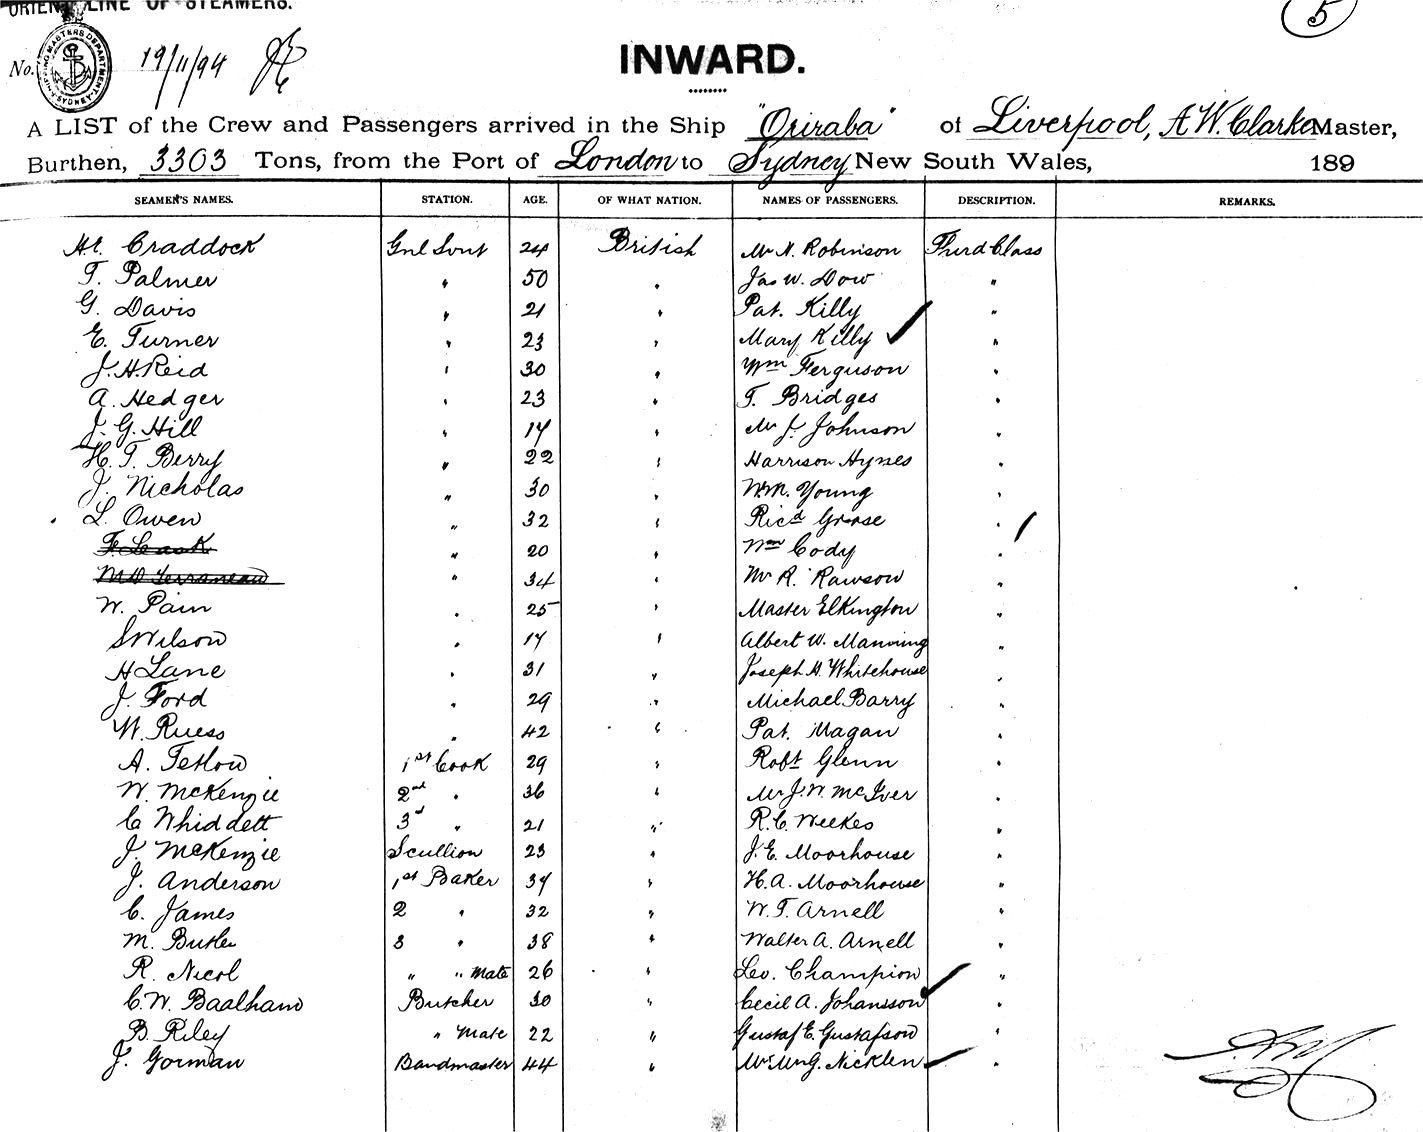 ORIENT LINE OF STEAMERS.
5
No.
SHIPPING MASTERS DEPARTMENT SYDNEY
19/11/94
INWARD.
A LIST of the Crew and Passengers arrived in the Ship "Oriraba" of Liverpool, A W. Clarke Master,
Burthen, 3303 Tons, from the Port of London to Sydney New South Wales, 189
SEAMEN'S NAMES. STATION. AGE. OF WHAT NATION. NAMES OF PASSENGERS. DESCRIPTION. REMARKS.
Craddock Gnl Servt 24 British Mr H. Robinson Third Class
T. Palmer " 50 " Jas W. Dow "
G. Davis " 21 " Pat. Killy "
E. Turner " 23 " Mary Killy "
J. H. Reid " 30 " Wm Ferguson "
A. Hedger " 23 " T. Bridges "
J. G. Hill " 17 " Mr J. Johnson "
H. T. Berry " 22 " Harrison Hynes "
J. Nicholas " 30 " W.M. Young "
L. Owen " 32 " Ricd Grose "
F. Leask " 20 " Wm Cody "
" 34 " Mr R. Rawson "
W. Pain " 25 " Master Elkington "
S Wilson " 17 " Albert W. Manning "
H Lane " 31 " Joseph H. Whitehouse "
J. Ford " 29 " Michael Barry "
W. Ruess " 42 " Pat. Magan "
A. Tetlow 1st Cook 29 " Robt Glenn "
W. McKenzie 2nd " 36 " Mr J. W. McIver "
C Whiddett 3d " 21 " R. C. Weekes "
J. McKenzie Scullion 23 " J. E. Moorhouse "
J. Anderson 1st Baker 37 " H. A. Moorhouse "
C. James 2 " 32 " W. T. Arnell "
M. Butler 3 " 38 " Walter A. Arnell "
R. Nicol " " Mate 26 " Leo. Champion "
C. W. Baalham Butcher 30 " Cecil A. Johansson "
B. Riley " Mate 22 " Gustaf E. Gustafson "
J. Gorman Bandmaster 44 " Nicklen "